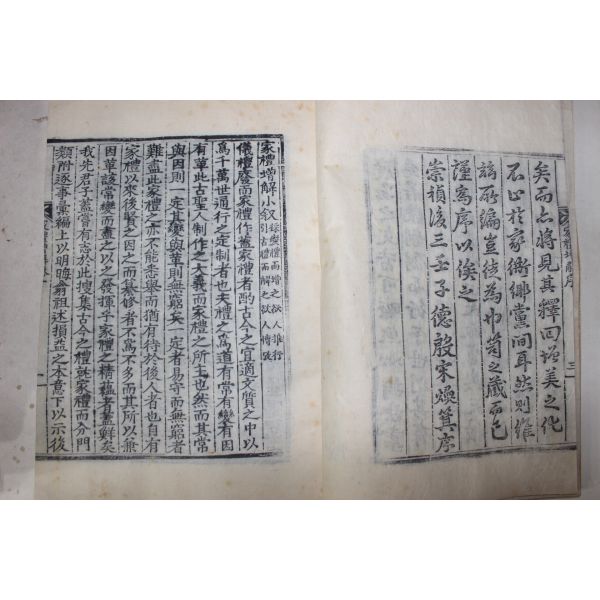 矣而亦將見其釋回增美之化
不止於家衖鄉黨間耳然則維
玆所編豈徒為巾笥之藏而已
謹為序以俟之
崇禎後三壬子德殷宋煥箕序
家禮增解序
三
家禮增解小叙
家禮增解之疑
儀禮廢而家禮作蓋家禮者酌古今之宜適文質之中以
為千萬世通行之定制者也夫禮之為道有常有變有因
有革此古聖人制作之大義而家禮之所主也然而其常
與因則一定其變與革則無窮矣一定者易守而無窮者
難盡此家禮之亦不能悉舉而猶有待於後人者也自有
家禮以來後賢之因而纂修者不為不多而其所以兼
因革該常變而盡之以之發揮乎家禮之精蘊者蓋鮮矣
我先君子蓋嘗有志於此搜集古今之禮就家禮而分門
類附逐事彙編上以明晦翁祖述損益之本意下以示後